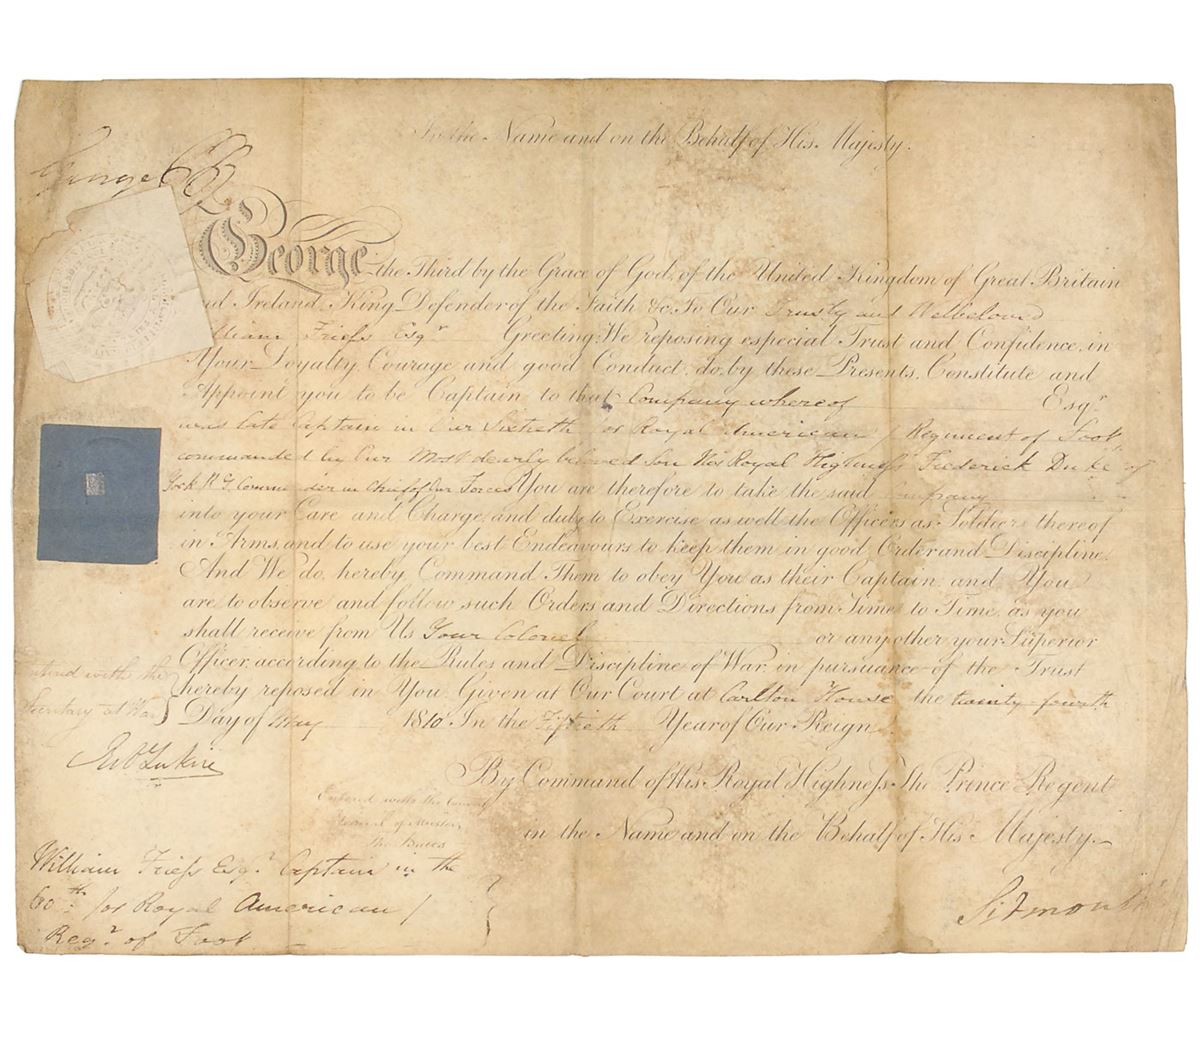 In the Name and on the Behalf of His Majesty.
George P R
George the Third by the Grace of God, of the United Kingdom of Great Britain
and Ireland King, Defender of the Faith &c. To Our Trusty and Welbeloved
William Friess Esqr. Greeting: We reposing especial Trust and Confidence, in
Your Loyalty, Courage and good Conduct, do, by these Presents, Constitute and
Appoint you to be Captain to that Company whereof Esqr.
was late Captain in Our Sixtieth (or Royal American) Regiment of Foot,
commanded by Our Most dearly beloved Son His Royal Highness Frederick Duke of
York K.G. Commander in Chief of Our Forces You are therefore to take the said Company
into your Care and Charge, and duly to Exercise as well the Officers as Soldiers thereof
in Arms, and to use your best Endeavours to keep them in good Order and Discipline;
And We do, hereby, Command Them to obey You as their Captain, and You
are to observe and follow such Orders and Directions from Time to Time, as you
shall receive from Us Your Colonel or any other your Superior
Officer, according to the Rules and Discipline of War, in pursuance of the Trust
hereby reposed in You. Given at Our Court at Carlton House the twenty-fourth
Day of May 1810 In the Fiftieth Year of Our Reign
Entered with the
Secretary at War
By Command of His Royal Highness The Prince Regent
in the Name and on the Behalf of His Majesty.
Entered with the
General of Musters
Sidmouth
William Friess Esqr. Captain in the
60th (or Royal American)
Regt. of Foot